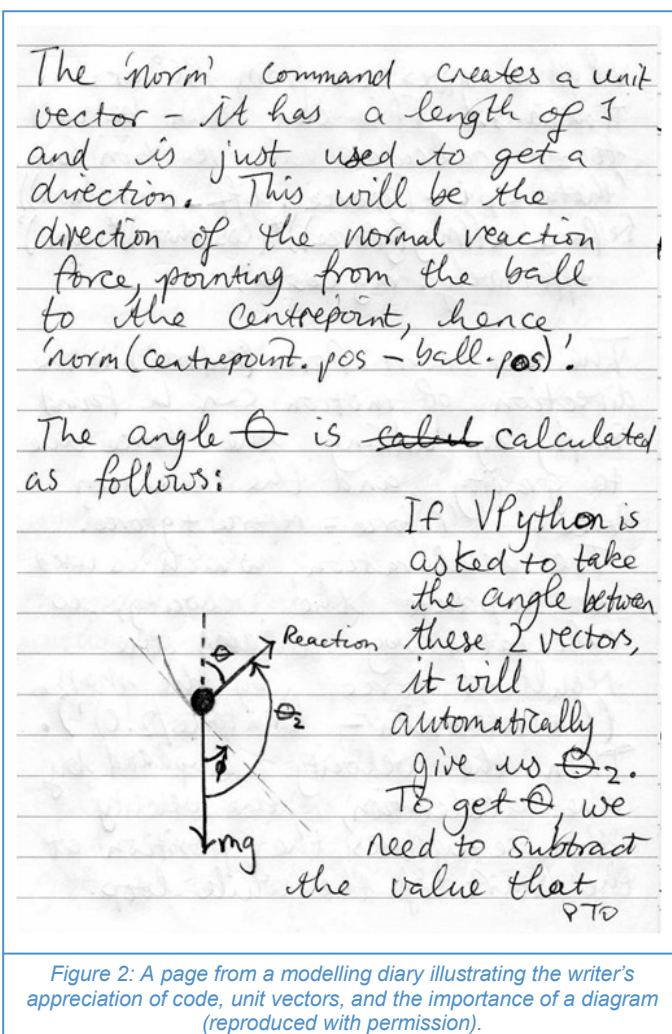 The 'norm' command creates a unit
vector - it has a length of 1
and is just used to get a
direction. This will be the
direction of the normal reaction
force, pointing from the ball
to the centrepoint, hence
'norm(centrepoint.pos - ball.pos)'.
The angle θ is calculated
as follows:
If VPython is
asked to take
the angle between
these 2 vectors,
it will
automatically
give us θ₂.
To get θ, we
need to subtract
the value that
PTO
θ
Reaction
θ₂
ϕ
mg
Figure 2: A page from a modelling diary illustrating the writer's
appreciation of code, unit vectors, and the importance of a diagram
(reproduced with permission).